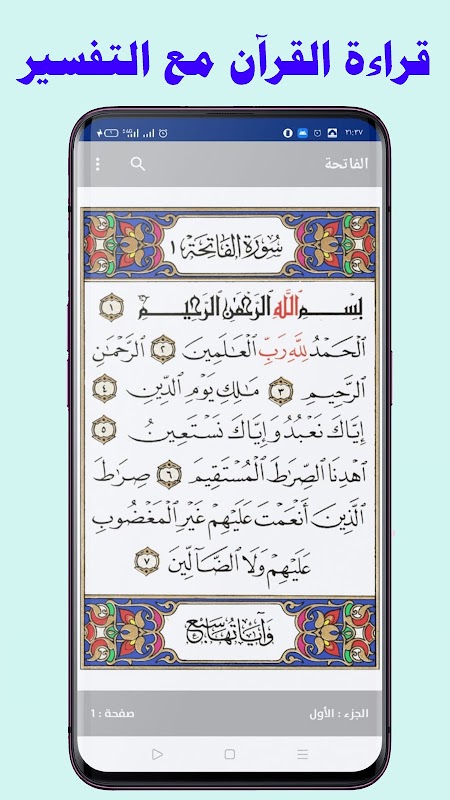 قراءة القرآن مع التفسير
٢١:٣٧
الفاتحة
سُورَة الفَاتِحَة ١
بِسْمِ اللَّهِ الرَّحْمَٰنِ الرَّحِيمِ ١
الْحَمْدُ لِلَّهِ رَبِّ الْعَالَمِينَ ٢ الرَّحْمَٰنِ
الرَّحِيمِ ٣ مَالِكِ يَوْمِ الدِّينِ ٤
إِيَّاكَ نَعْبُدُ وَإِيَّاكَ نَسْتَعِينُ ٥
اهْدِنَا الصِّرَاطَ الْمُسْتَقِيمَ ٦ صِرَاطَ
الَّذِينَ أَنْعَمْتَ عَلَيْهِمْ غَيْرِ الْمَغْضُوبِ
عَلَيْهِمْ وَلَا الضَّالِّينَ ٧
وَآيَاتُهَا سَبْع
الجزء : الأول
صفحة : 1